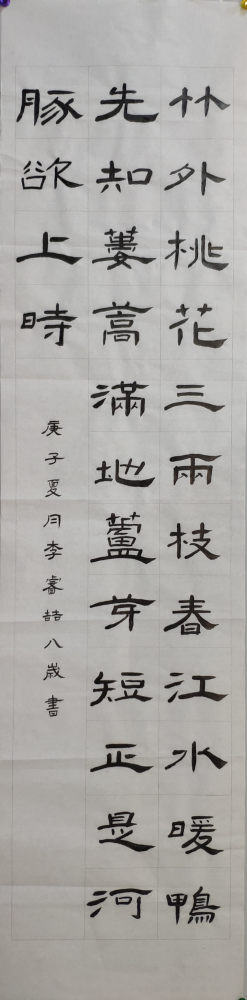 竹外桃花三兩枝春江水暖鴨
先知蔞蒿滿地蘆芽短正是河
豚欲上時
庚子夏月李睿喆八歲書